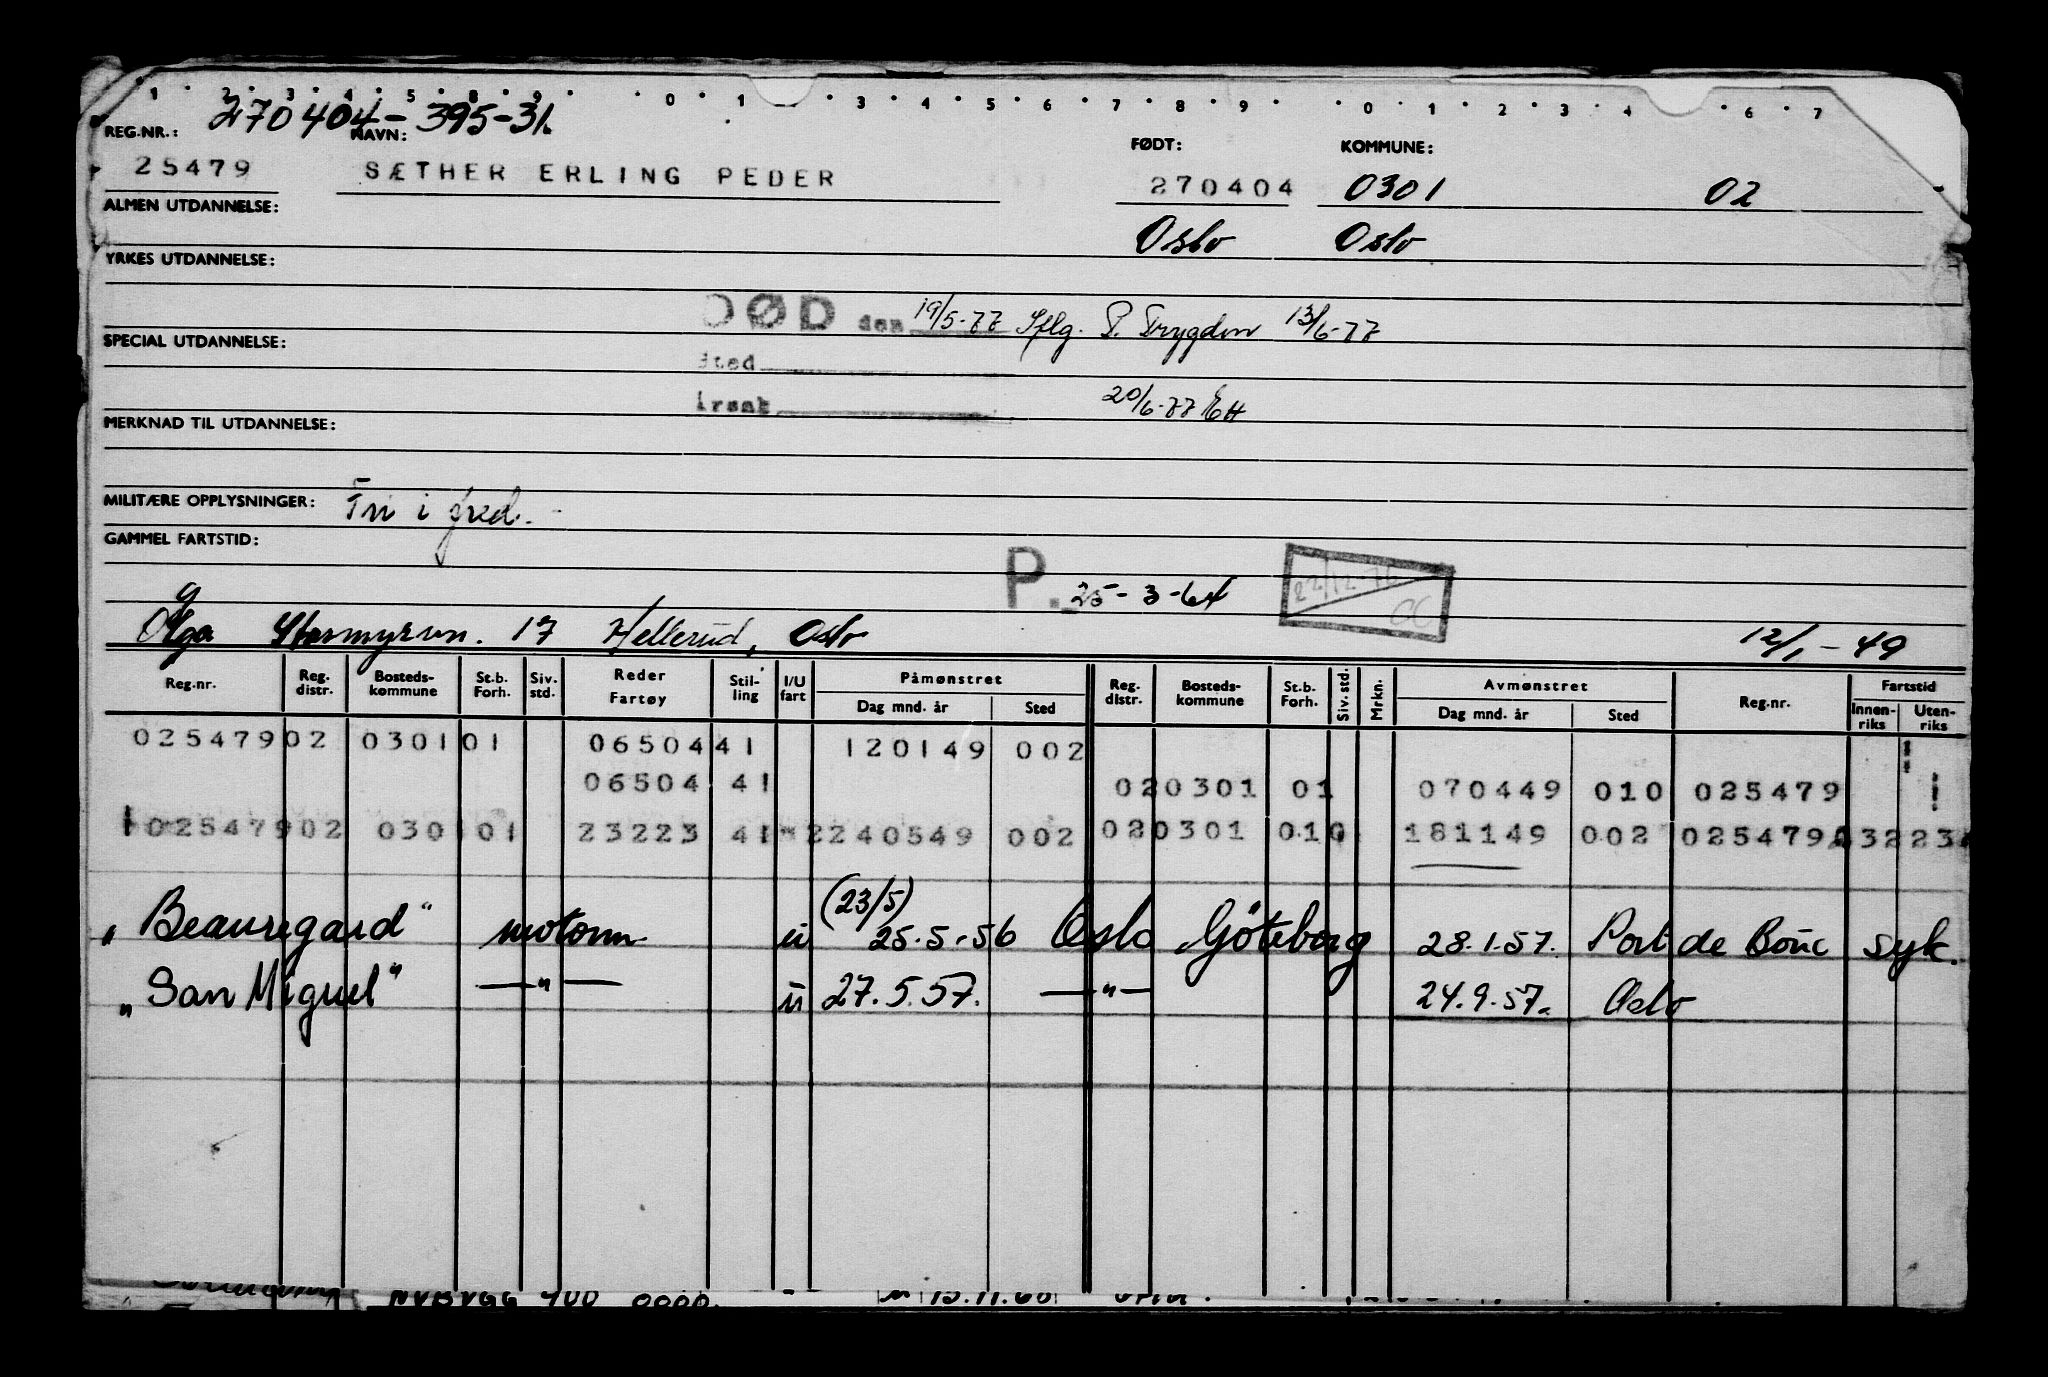 1 2 3 4 5 8 9 0 1 3 4 5 6 7 8 9 0 1 2 3 4 6 7
270404-395-31.
REG.NR.: NAVN: FØDT: KOMMUNE:
25479 SÆTHER ERLING PEDER 270404 0301 02
ALMEN UTDANNELSE: Oslo Oslo
YRKES UTDANNELSE:
DØD den 19/5-77 Iflg. P. Trygden 13/6-77
SPECIAL UTDANNELSE: Sted
Årsak 20/6-77
MERKNAD TIL UTDANNELSE:
MILITÆRE OPPLYSNINGER: Fri i fred.
GAMMEL FARTSTID:
P. 25-3-64 22/12-76 CC
Olga 17 Hellerud, Oslo 12/1-49
Reg.nr. Reg. distr. Bosteds- kommune St.b. Forh. Siv. std. Reder Fartøy Stil- ling I/U fart Påmønstret Dag mnd. år Sted Reg. distr. Bosteds- kommune St.b. Forh. Siv. std. Mrkn. Avmønstret Dag mnd. år Sted Reg.nr. Fartstid Innen- riks Uten- riks
025479 02 0301 01 06504 41 120149 002
06504 41 02 0301 01 070449 010 025479
025479 02 030 01 23223 41 2 240549 002 02 0301 010 181149 002 025479 32 23
(23/5)
"Beauregard" motorm. u 25.5.56 Oslo Göteborg 28.1.57. Port de Bouc syk.
"San Miguel" —"— u 27.5.57. —"— 24.9.57. Oslo